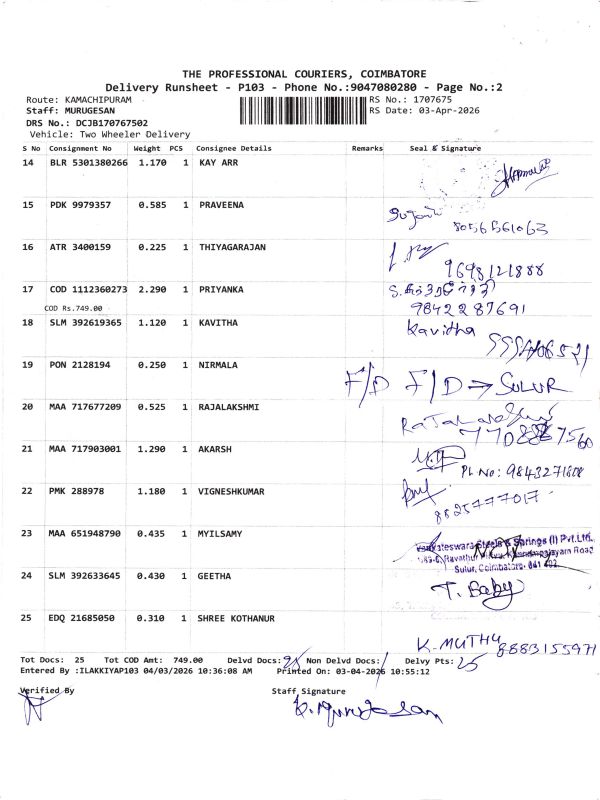 THE PROFESSIONAL COURIERS, COIMBATORE
Delivery Runsheet - P103 - Phone No.:9047080280 - Page No.:2
Route: KAMACHIPURAM RS No.: 1707675
Staff: MURUGESAN RS Date: 03-Apr-2026
DRS No.: DCJB170767502
Vehicle: Two Wheeler Delivery
S No Consignment No Weight PCS Consignee Details Remarks Seal & Signature
14 BLR 5301380266 1.170 1 KAY ARR
15 PDK 9979357 0.585 1 PRAVEENA
8056561063
16 ATR 3400159 0.225 1 THIYAGARAJAN
9698121888
17 COD 1112360273 2.290 1 PRIYANKA
COD Rs.749.00 9842287691
18 SLM 392619365 1.120 1 KAVITHA Kavitha
19 PON 2128194 0.250 1 NIRMALA F/D F/D → SULUR
20 MAA 717677209 0.525 1 RAJALAKSHMI
21 MAA 717903001 1.290 1 AKARSH
PH No: 9843271808
22 PMK 288978 1.180 1 VIGNESHKUMAR
8825777017
23 MAA 651948790 0.435 1 MYILSAMY Venkateswara Steels & Springs (I) Pvt.Ltd.,
Sulur, Coimbatore- 641 402.
24 SLM 392633645 0.430 1 GEETHA T. Baby
25 EDQ 21685050 0.310 1 SHREE KOTHANUR
K. MUTHU 8883155971
Tot Docs: 25 Tot COD Amt: 749.00 Delvd Docs: Non Delvd Docs: Delvy Pts: 25
Entered By :ILAKKIYAP103 04/03/2026 10:36:08 AM Printed On: 03-04-2026 10:55:12
Verified By Staff Signature
K. Murugesan